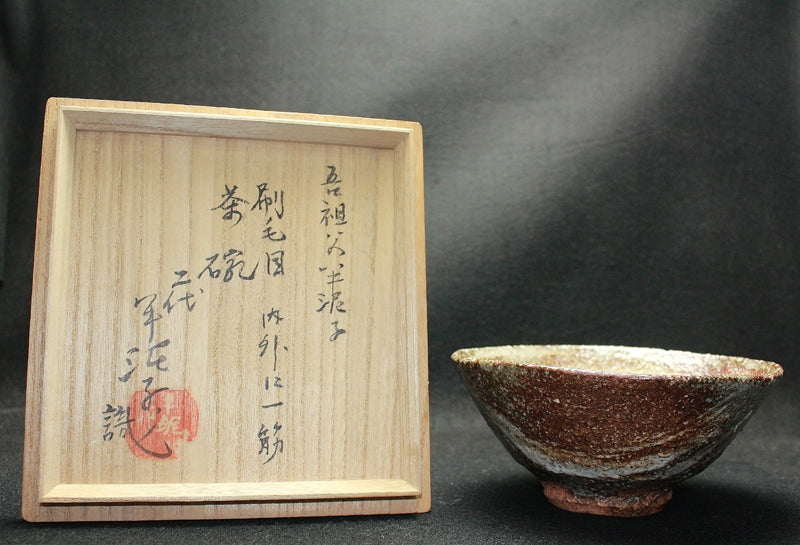 吾祖父半泥子
刷毛目 内外に一筋
茶碗
二代
半泥子
識